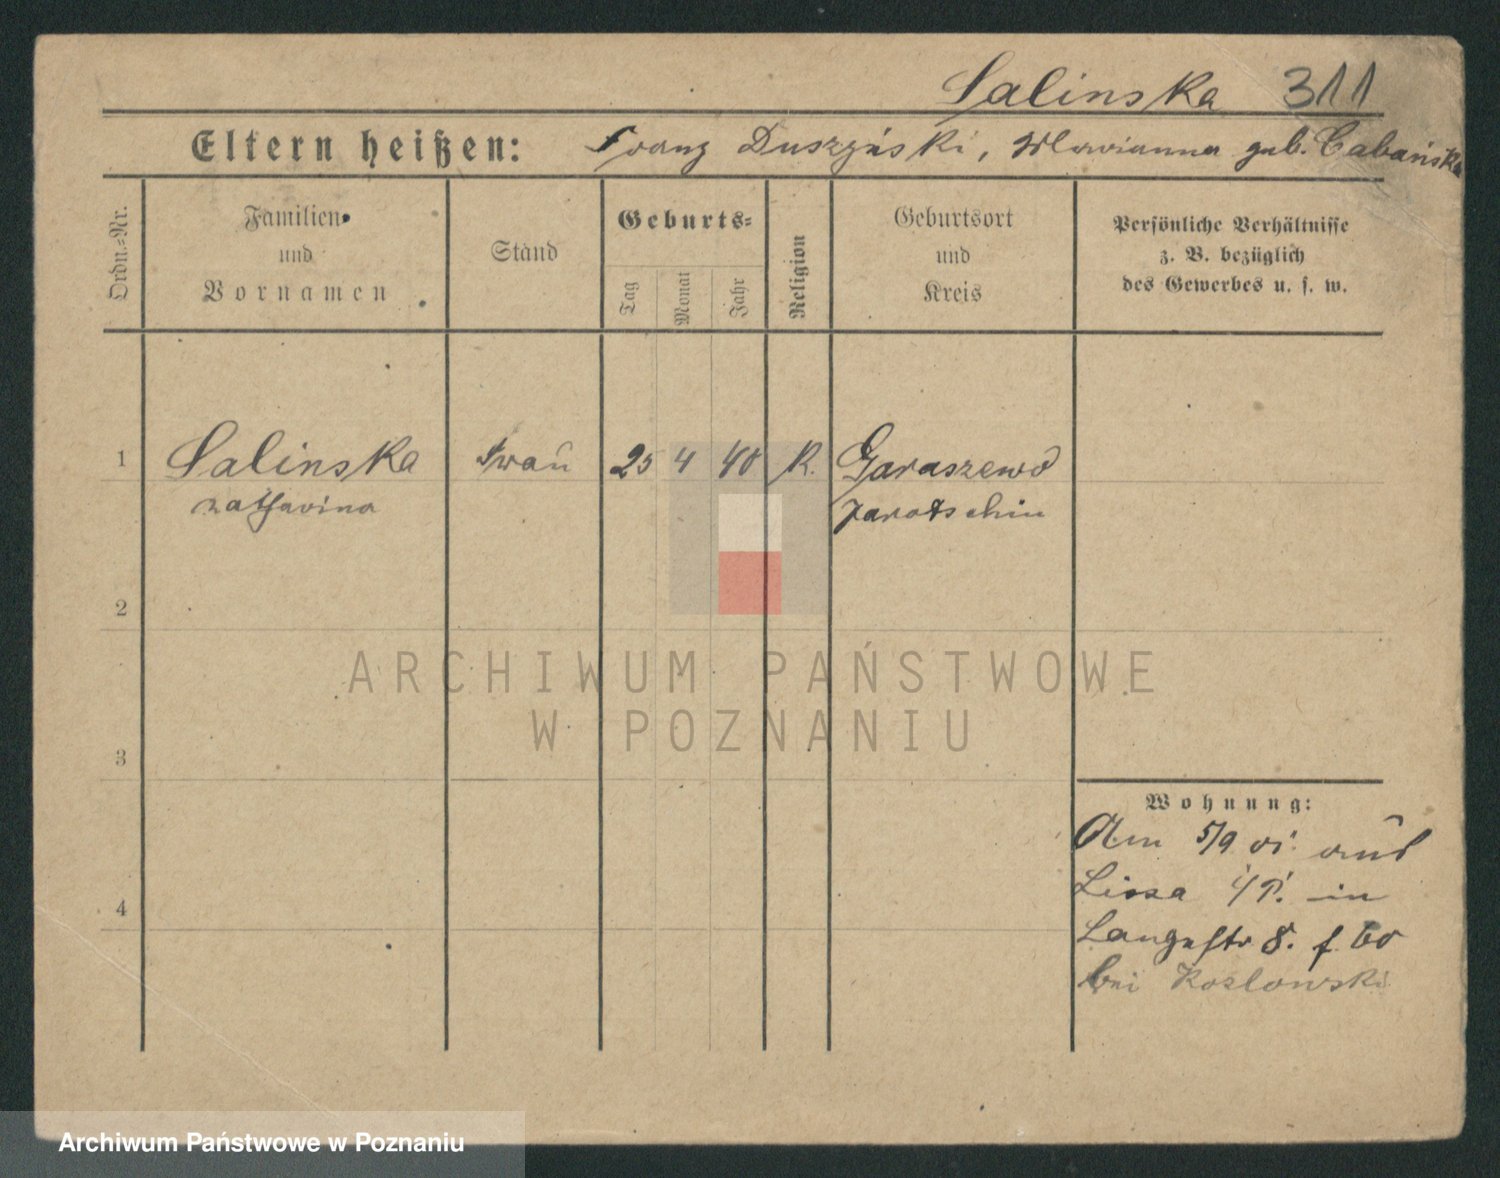 Salinska 311
Eltern heißen: Franz Duszyński, Marianna geb. Cabańska
Ordn.=Nr.
Familien-
und
Vornamen
Stand
Geburts=
Tag
Monat
Jahr
Religion
Geburtsort
und
Kreis
Persönliche Verhältnisse
z. B. bezüglich
des Gewerbes u. s. w.
1 Salinska Frau 25 4 40 K. Garaszewo
Katharina Jarotschin
2
ARCHIWUM PAŃSTWOWE
W POZNANIU
3
Wohnung:
Am 5/9 01. aus
Lissa i/P. in
Langestr 8.
4
bei Kozlowski
Archiwum Państwowe w Poznaniu